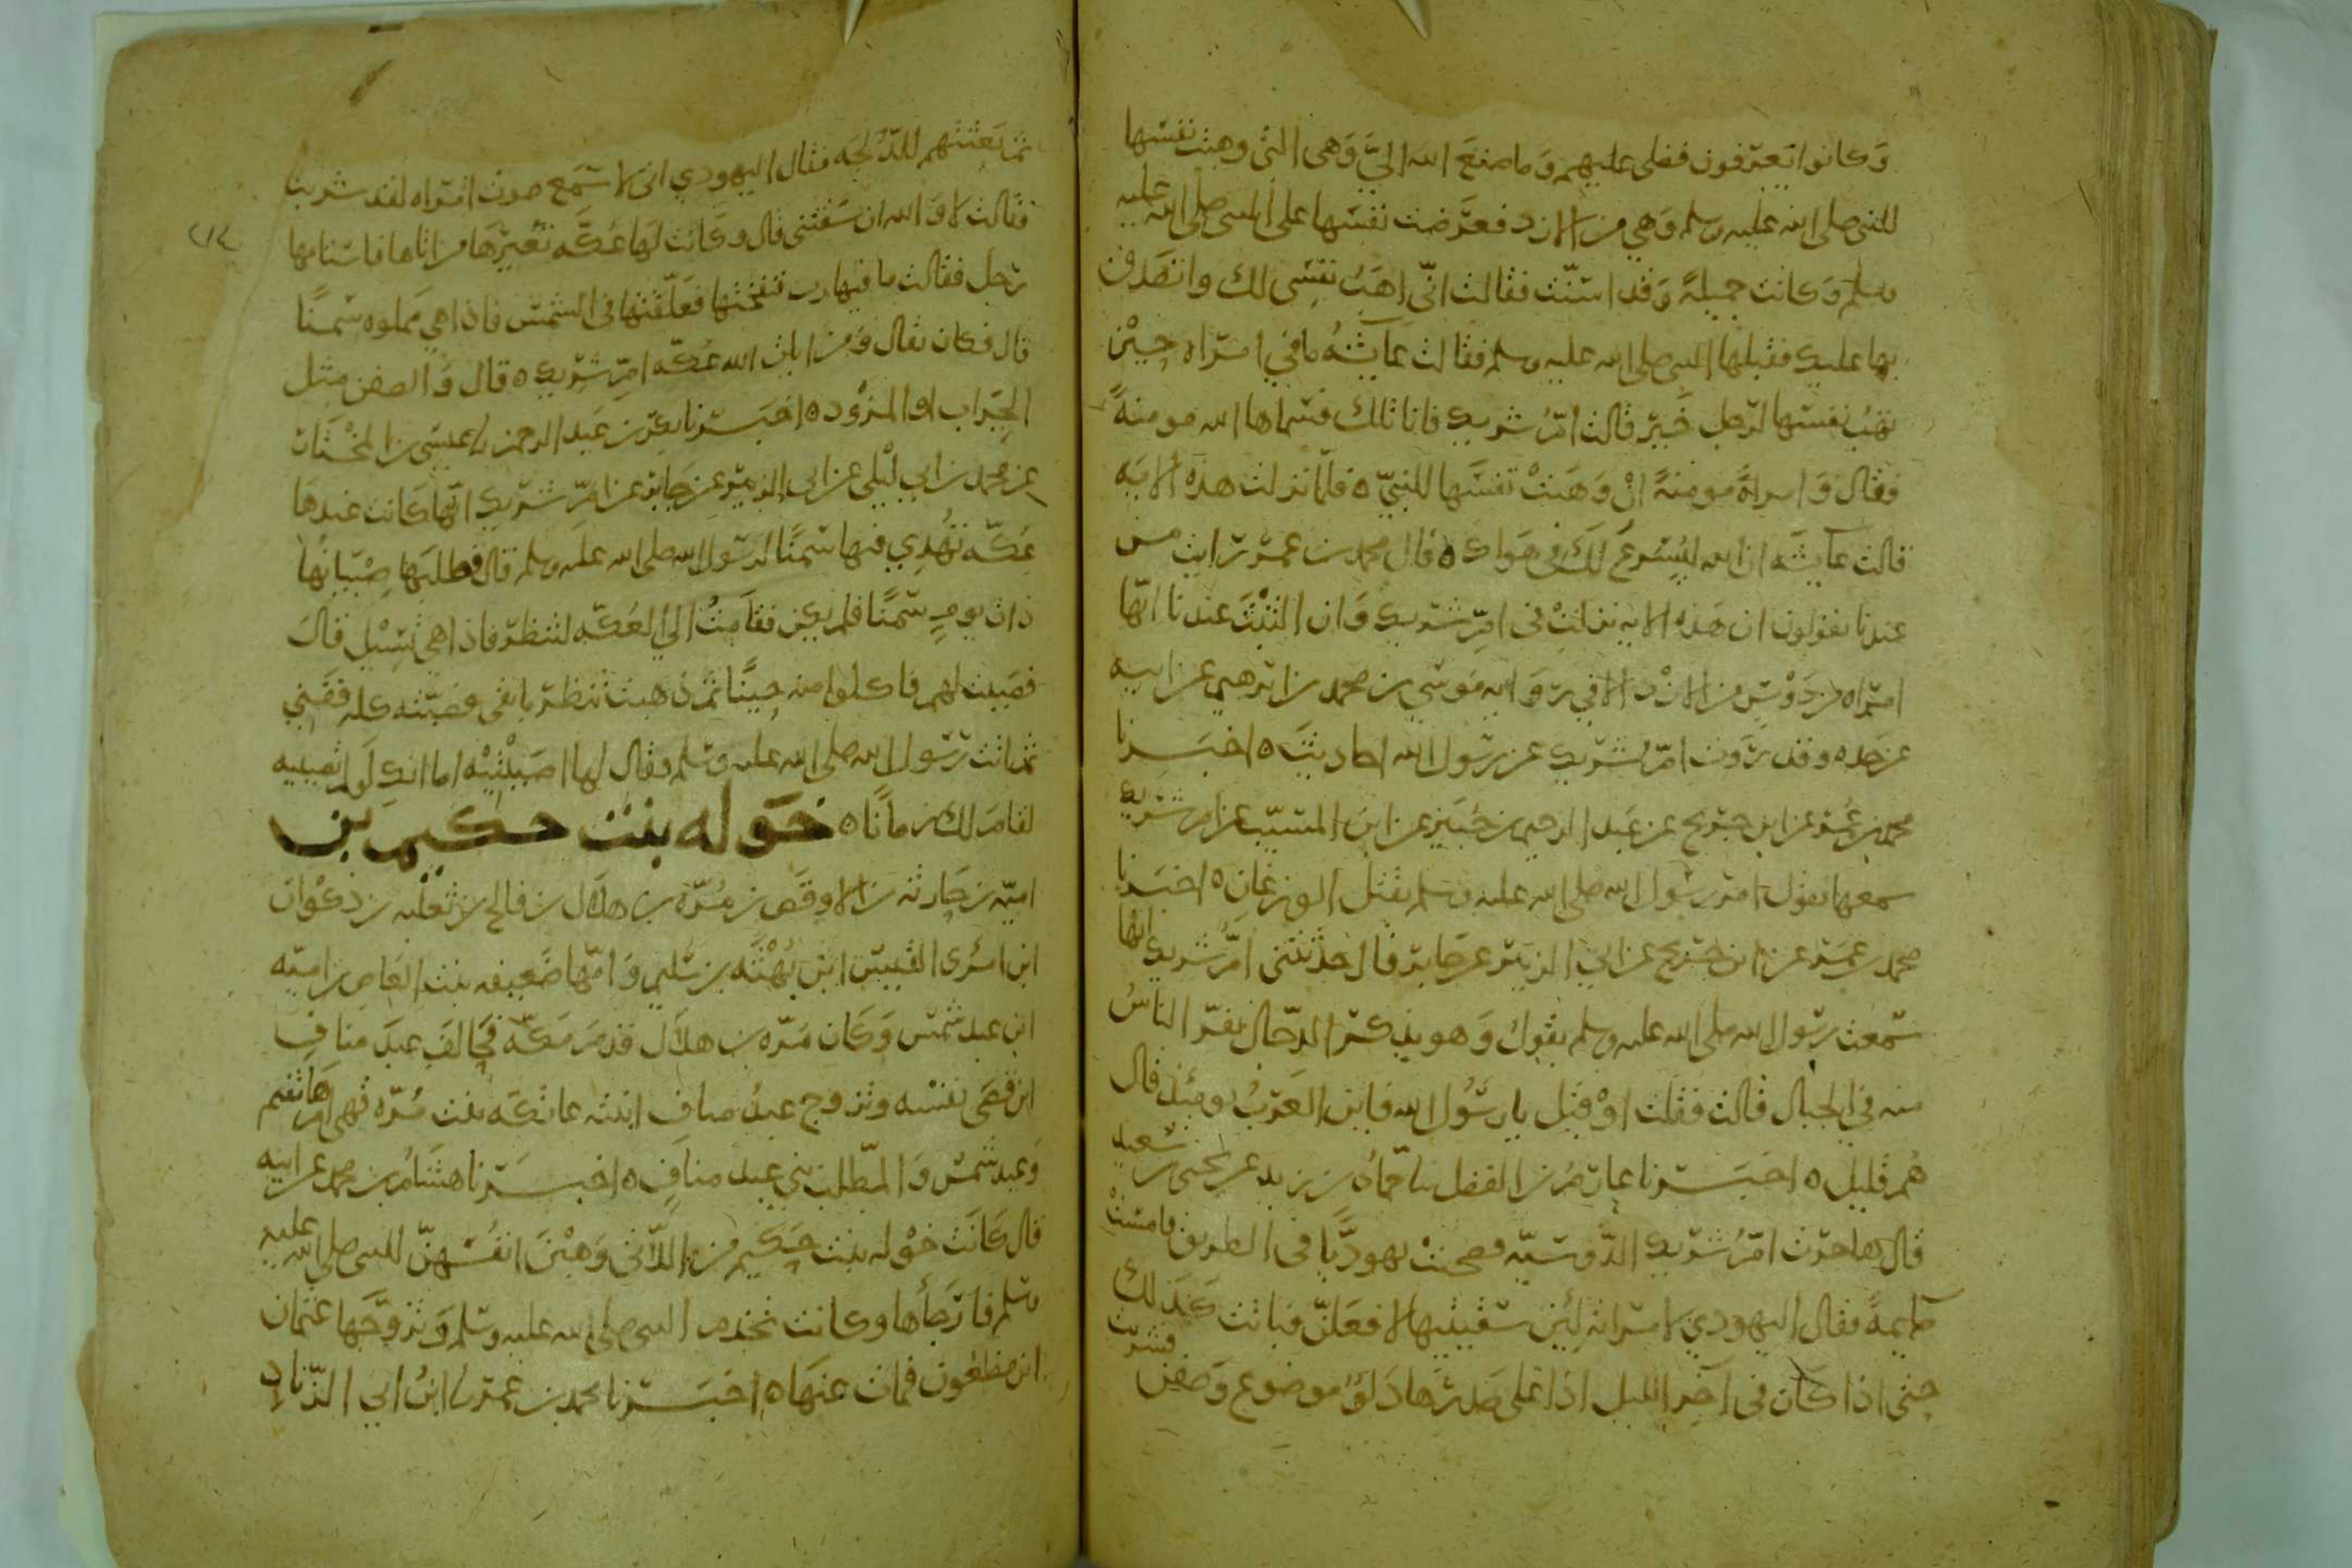 وكانوا يتعرفون فضلي عليهم وما صنع الله اليَّ وهي التي وهبت نفسها
للنبي صلى الله عليه وسلم وهي من الازد فعرّضت نفسها على النبي صلى الله عليه
وسلم وكانت جميلةً وقد اسنّت فقالت انّي اهبُ نفسي لك واتصدق
بها عليك فقبلها النبي صلى الله عليه وسلم فقالت عايشةُ ما في امراه حين
تهبُ نفسها لرجل خير قالت امّ شريك فانا تلك فسماها الله مومنةً
فقال وامراةً مومنةً انْ وهبتْ نفسها للنبيّ ٥ فلما نزلت هذه الايه
قالت عايشه ان الله ليُسرع لك في هواك ٥ قال محمد بن عمر رايت من
عندنا يقولون ان هذه الايه نزلتْ في امِّ شريك وان الثبتَ عندنا انّها
امراه من دَوْسٍ من الازْد الا في روايه موسي بن محمد بن ابرهيم عن ابيه
عن جده وقد روت امّ شريك عن رسول الله احاديثَ ٥ اخبرنا
محمد بن عُمر عن ابن جريج عن عبد الحميد بن جُبير عن ابن المسيّب عن ام شريك
سمعها تقول امر رسول الله صلى الله عليه وسلم بقتل الوزغانِ ٥ اخبرنا
محمد بن عمر عن ابن جريج عن ابي الزبير عن جابر قال حدثتني امُّ شريك انها
سمعت رسول الله صلى الله عليه وسلم يقول وهو يذكر الدجّال يفرّ الناسُ
منه في الجبال قالت فقلت اوْ قيل يا رسُول الله فاين العربُ يومئذ قال
هُم قليل ٥ اخبرنا عارمُ بن الفضل نا حمّادُ بن زيد عن يحيى بن سعيد
قال هاجرت امُّ شريك الدّوسيّه فصحبتْ يهوديًّا في الطريق فامستْ
صايمةً فقال اليهودي لامراته لئِن سقيتيها لافعلنّ فباتت كذلك
حتى اذا كان في آخر الليل اذا على صدرها دَلوٌ موضوع وصَفن فشربت
ثم بعثتهم للدُّلجه فقال اليهودي اني لاسمع صوت امراه لقد شربت
فقالت لا والله ان سقتني قال وكانت لها عُكّه تُعيرها من اتاها فاستامها
رجل فقالت ما فيها رب فنفختها فعلّقتها في الشمس فاذا هي مملوه سمنًا
قال فكان يقال ومن ايات الله عُكّه امِّ شريك ٥ قال والصفن مثل
الجِراب او المزْود ٥ اخبرنا بكر بن عبد الرحمن نا عيسى بن المختار
عن محمد بن ابي ليْلي عن ابي الزبير عن جابر عن امِّ شريك انها كانت عندها
عُكّه تُهدِي فيها سمنًا لرسول الله صلى الله عليه وسلم قال فطلبها صِبْيانُها
ذات يومٍ سمنًا فلم يكن فقامتْ الي العُكّه لتنظر فاذا هي تسِيْل قال
فصبت لهم فاكلوا منه حِينًا ثم ذهبت تنظر ما بقي فصبّته كله ففني
ثم اتت رسول الله صلى الله عليه وسلم فقال لها اصببْتيْه اما انك لو لم تصبيه
لقام لك زمانًا ٥ خَوله بنت حكيم بن
اميّه بن حارثه بن الاوقص بن مُرّه بن هلال بن فالج بن ثعلبه بن ذكْوان
ابن امرى القيس ابن بُهْثه بن سُليم وامّها ضعيفه بنت العاص بن اميّه
ابن عبد شمس وكان مرّه بن هلال قدم مكّه فحالف عبد مناف
ابن قصَي بنفسه وتزوج عبدُ مناف ابنته عاتكه بنت مُرّه فهي ام هاشم
وعبد شمس والمطّلب بني عبد منافٍ ٥ اخبرنا هشام بن محمد عن ابيه
قال كانت خوْله بنت حكيم من اللاّتي وهبْن انفُسهنّ للنبي صلى الله عليه
وسلم فارجأها وكانت تخدم النبي صلى الله عليه وسلم وتزوّجها عثمان
ابن مظعُون فمات عنها ٥ اخبرنا محمد بن عمر نا ابنُ ابي الزّناد